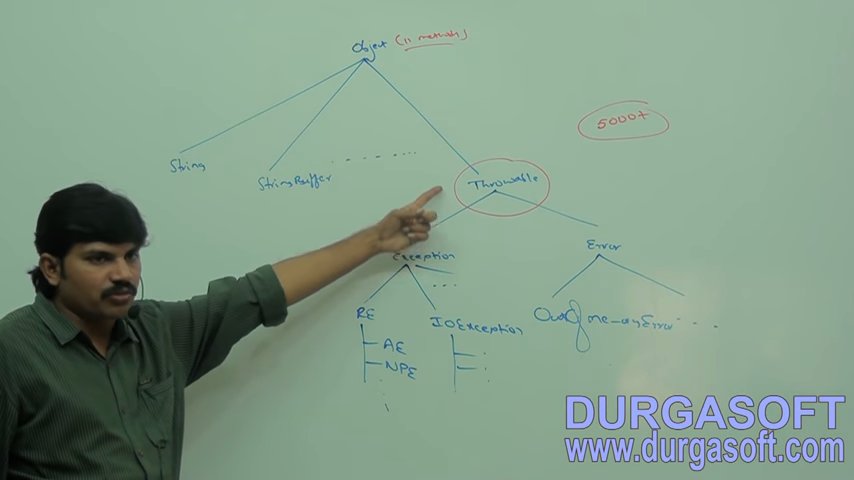 Object (11 methods)
5000+
String
StringBuffer
Throwable
Exception
Error
RE
IOException
OutOfmemoryError
AE
NPE
DURGASOFT
www.durgasoft.com